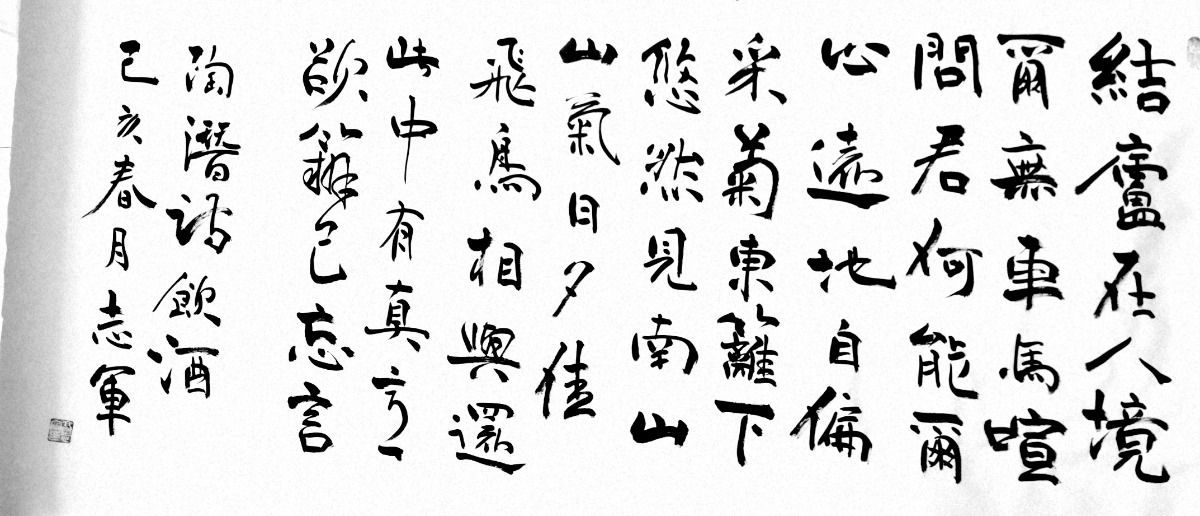 結廬在人境
爾無車馬喧
問君何能爾
心遠地自偏
采菊東籬下
悠然見南山
山氣日夕佳
飛鳥相與還
此中有真
欲辨已忘言
陶潛詩飲酒
己亥春月志軍